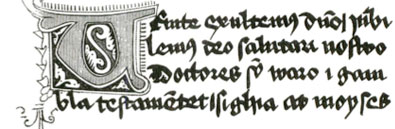 VEnite exultemꝰ dn̄o iubi
lemus deo salutari nostro
Doctores waro i gam
bla testamentet moyses